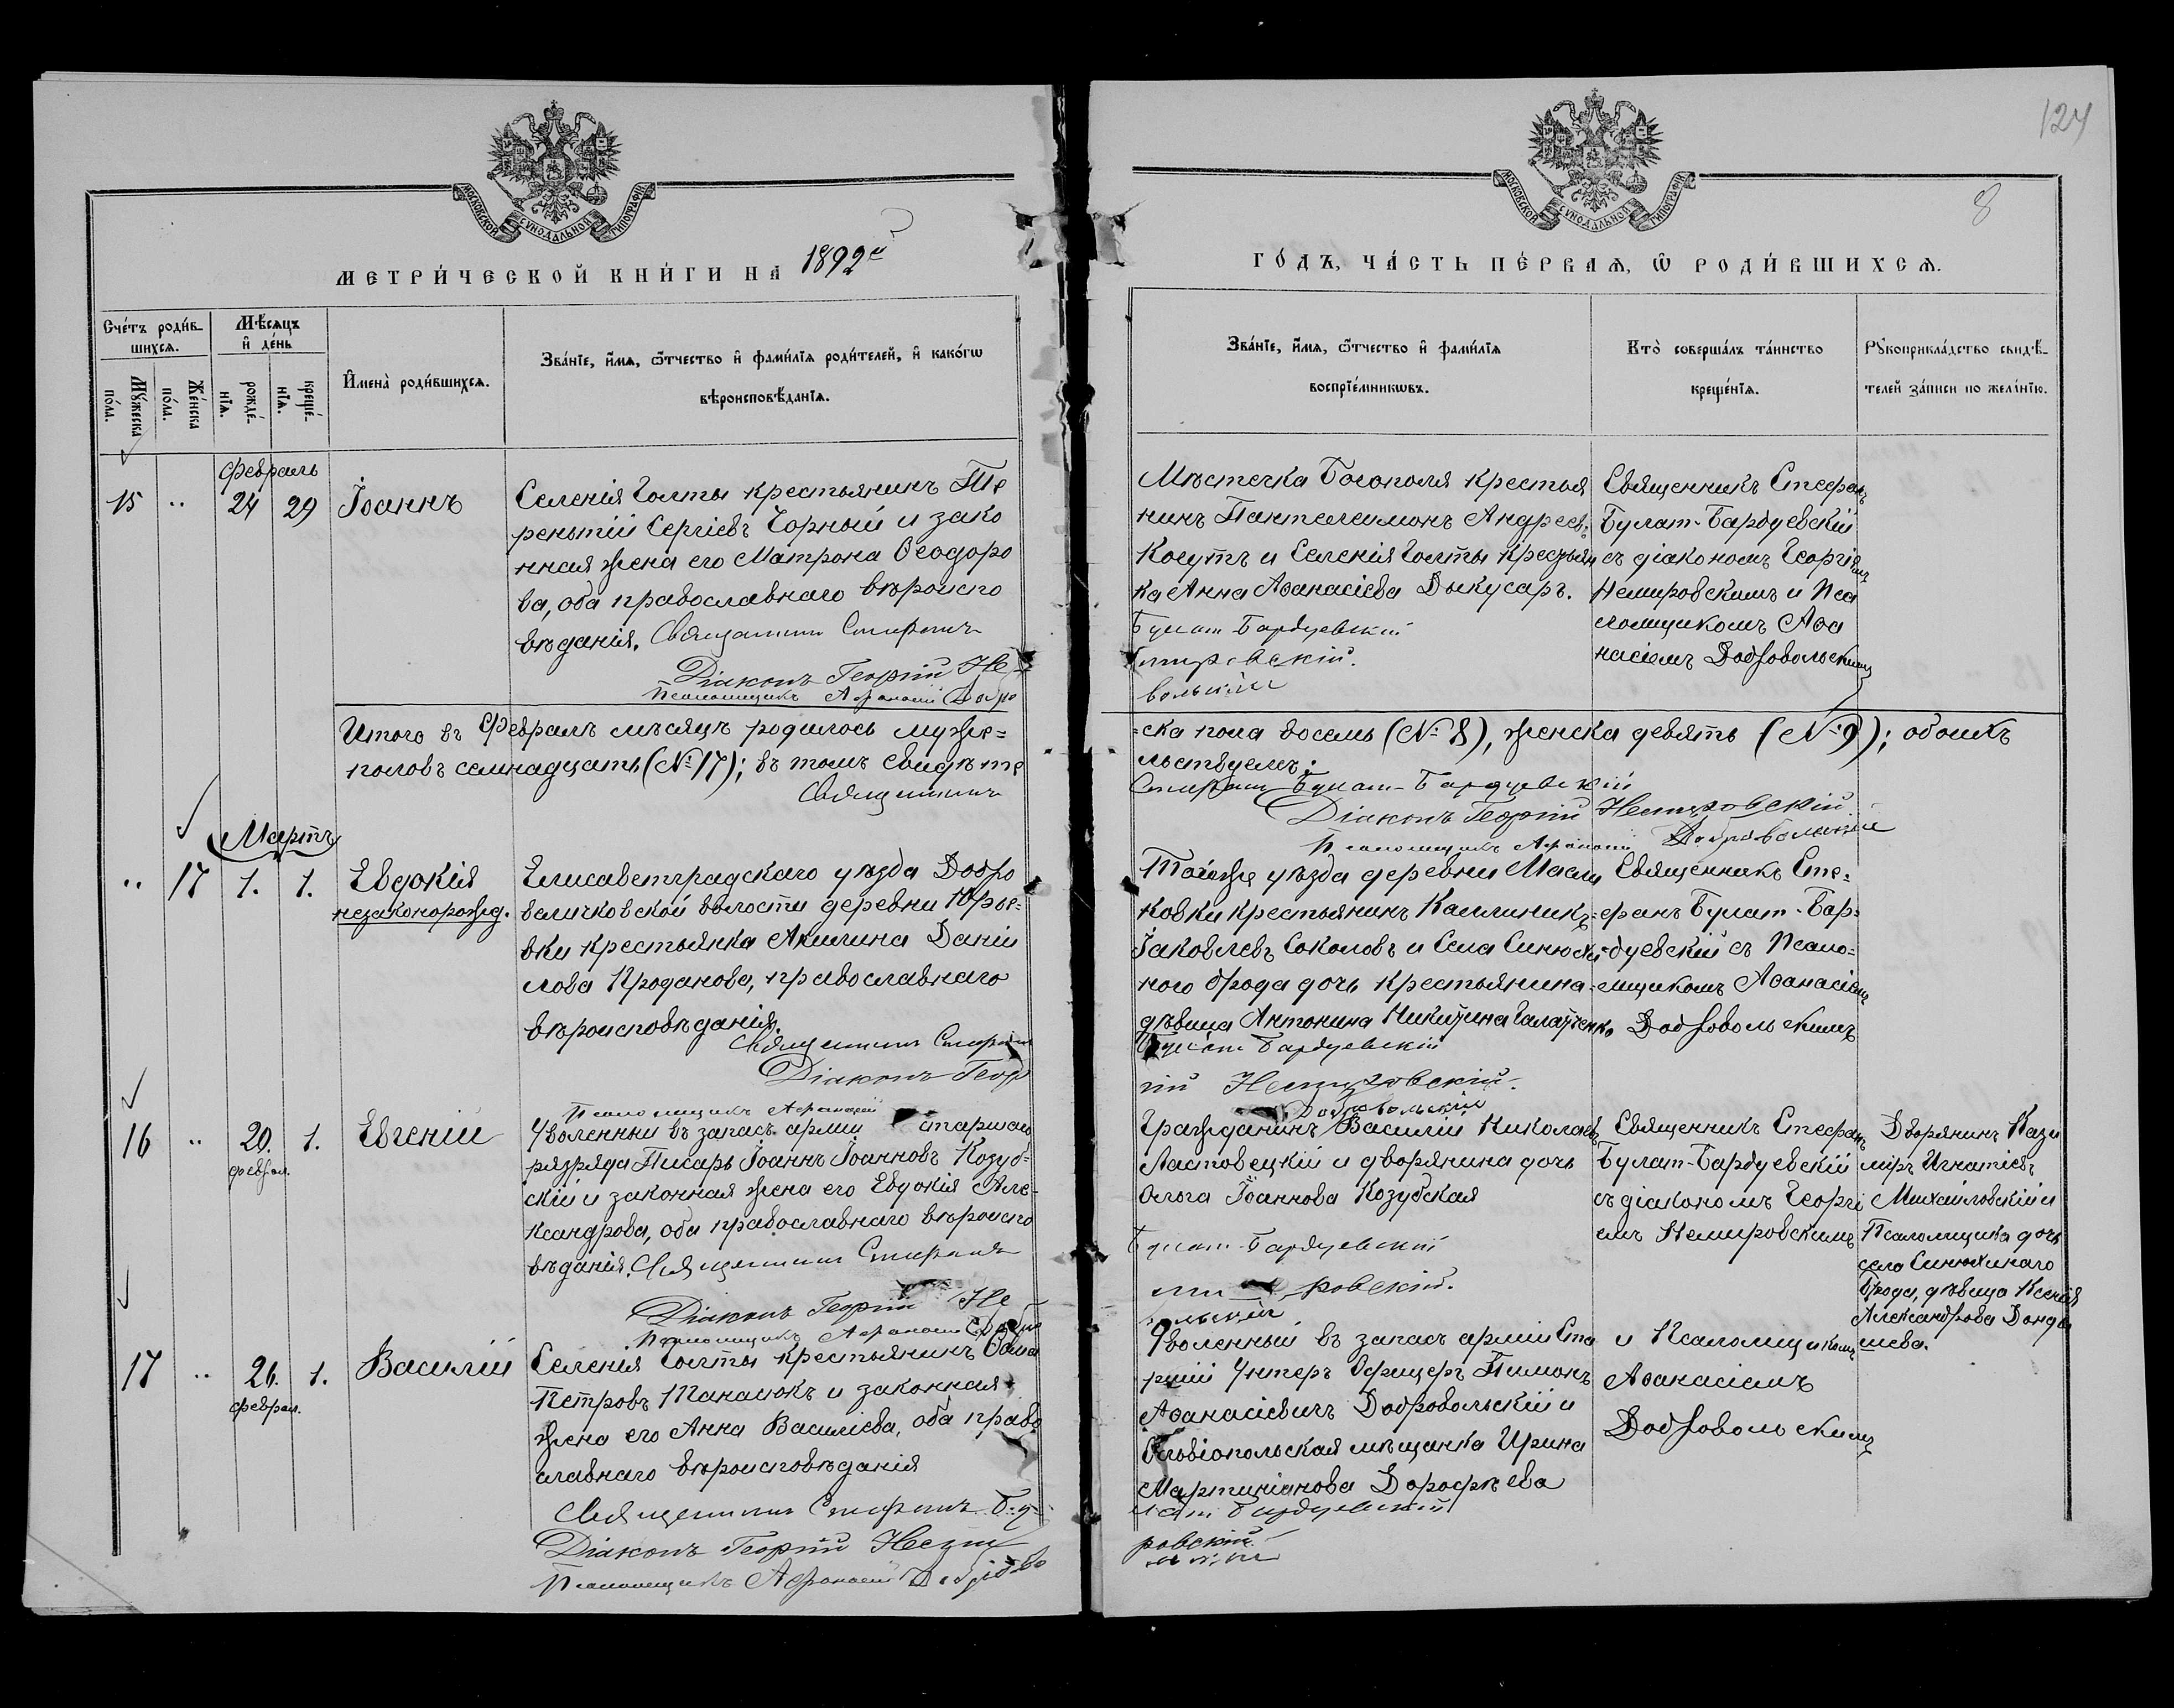 124
8
МОСКОВСКОЙ СѴНОДАЛЬНОЙ ТИПОГРАФІИ
МОСКОВСКОЙ СѴНОДАЛЬНОЙ ТИПОГРАФІИ
МЕТРИ́ЧЕСКОЙ КНИ́ГИ НА 1892й
ГО́ДЪ, ЧА́СТЬ ПЕ́РВАѦ, Ѿ РОДИ́ВШИХСѦ.
Сче́тъ роди́в-
шихсѧ.
Мꙋ́жеска
по́ла.
Же́нска
по́ла.
Мѣ́сѧцъ
и҆ де́нь
рожде́-
нїѧ.
креще́-
нїѧ.
И҆мена̀ роди́вшихсѧ.
Зва́нїе, и҆́мѧ, ѻ҆́тчество и҆ фами́лїѧ роди́телей, и҆ како́гѡ
вѣроисповѣ́данїѧ.
Зва́нїе, и҆́мѧ, ѻ҆́тчество и҆ фами́лїѧ
воспрїе́мникѡвъ.
Кто̀ соверша́лъ та́инство
креще́нїѧ.
Рꙋкоприкла́дство свидѣ́-
телей за́писи по жела́нїю.
Февраль
15 " 24 29 Іоаннъ
Селенія Голты крестьянинъ Те
рентій Сергіевъ Чорный и зако
нная жена его Матрона Ѳеодоро
ва, оба православнаго вѣроиспо
вѣданія. Священникъ Стефанъ
Діаконъ Георгій Не
Псаломщикъ Афанасій Добро
Мѣстечка Богополя крестья
нинъ Пантелеимонъ Андреевъ
Когутъ и Селенія Голты крестьян
ка Анна Аѳанасіева Дыкусаръ.
Булат-Бардуевскій
мировскій.
вольскій
Священникъ Стефанъ
Булат-Бардуевскій
съ діакономъ Георгіемъ
Немировскимъ и Пса
ломщикомъ Аѳа
насіемъ Добровольскимъ
Итого въ Февралѣ мѣсяцѣ родилось муже=
половъ семнадцать (№ 17); въ томъ свидѣте
Священникъ
=ска пола восемь (№ 8), женска девять (№ 9); обоихъ
льствуемъ:
Стефанъ Булат-Бардуевскій
Діаконъ Георгій Немировскій
Псаломщикъ Афанасій Добровольскій
Мартъ
" 17 1. 1. Евдокія
незаконорожд.
Елисаветградскаго уѣзда Добро
величковской волости деревни Юрье=
вки крестьянка Акилина Даніи
лова Проданова, православнаго
вѣроисповѣданія.
Священникъ Стефанъ
Діаконъ Геор
Псаломщикъ Афанасій
Того-же уѣзда деревни Маслы
ковки крестьянинъ Каллиникъ
Іаковлевъ Соколовъ и Села Синюхи
ного брода дочь крестьянина
дѣвица Антонина Никитина Галатенко
Булат Бардуевскій
гій Немировскій.
Добровольскій
Священникъ Сте=
=фанъ Булат-Бар=
=дуевскій съ Псало=
=мщикомъ Аѳанасіемъ
Добровольскимъ
16 " 20. 1. Евгеній
феврал.
Уволенный въ запасъ арміи старшаго
разряда Писарь Іоаннъ Іоанновъ Козуб=
скій и законная жена его Евдокія Але=
ксандрова, оба православнаго вѣроиспо
вѣданія. Священникъ Стефанъ
Діаконъ Георгій Не
Псаломщикъ Афанасій Добро
Гражданинъ Василій Николаевъ
Ластовецкій и дворянина дочь
Ольга Іоаннова Козубская
Булат-Бардуевскій
ми ровскій.
вольскій
Священникъ Стефанъ
Булат-Бардуевскій
съ діакономъ Георгі
емъ Немировскимъ
Дворянинъ Кази
миръ Игнатіевъ
Михайловскій и
Псаломщика дочь
села Синюхинаго
Брода, дѣвица Ксенія
Александрова Донда
шева.
17 " 26. 1. Василій
феврал.
Селенія Голты крестьянинъ Ѳома
Петровъ Танасюкъ и законная
жена его Анна Василіева, оба право
славнаго вѣроисповѣданія
Священникъ Стефанъ Бу-
Діаконъ Георгій Неми
Псаломщикъ Афанасій Доброво
Уволенный въ запасъ арміи Ста
ршій Унтеръ Офицеръ Пимонъ
Аѳанасіевичъ Добровольскій и
Ольвіопольская мѣщанка Ирина
Мартиніанова Дорофѣева
лат Бардуевскій
ровскій
льскій
и Псаломщикомъ
Аѳанасіемъ
Добровольскимъ